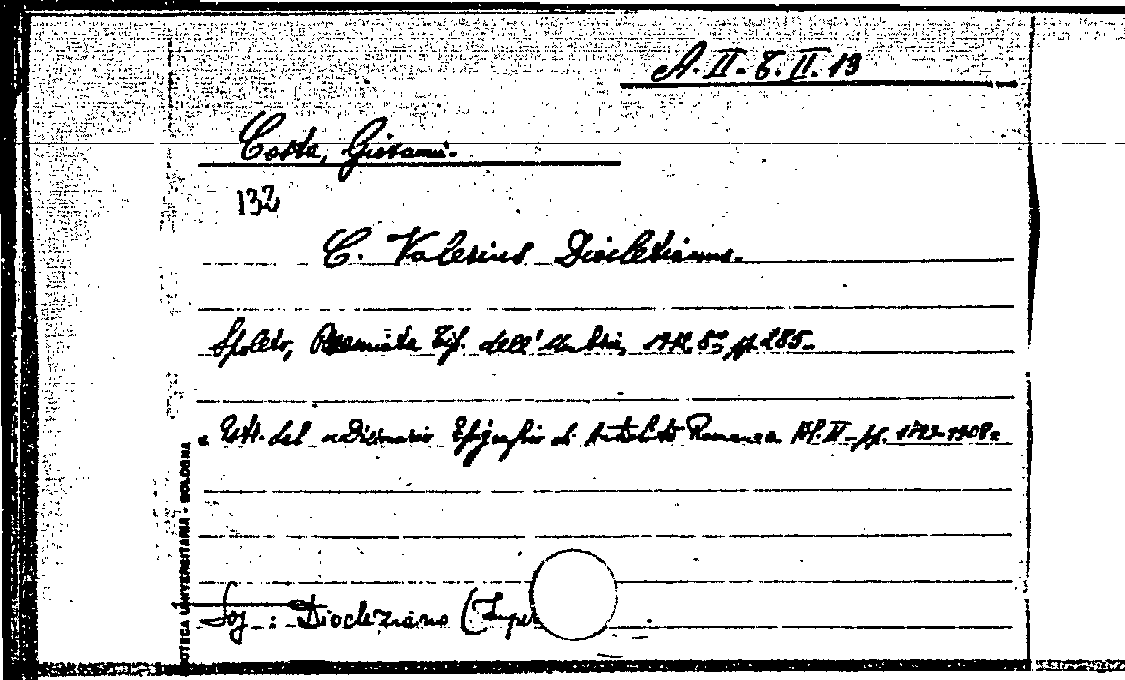 A. II. B. II. 19
Costa, Giovanni.
132
C. Valerius Diocletianus.
Spoleto, Tip. dell'Umbria, 1912, 8°, pp. 285.
Estr. dal «Dizionario Epigrafico di Antichità Romane» Vol. II - pp. 1908.
Sog.: Diocleziano (Imper
OTECA UNIVERSITARIA - BOLOGNA